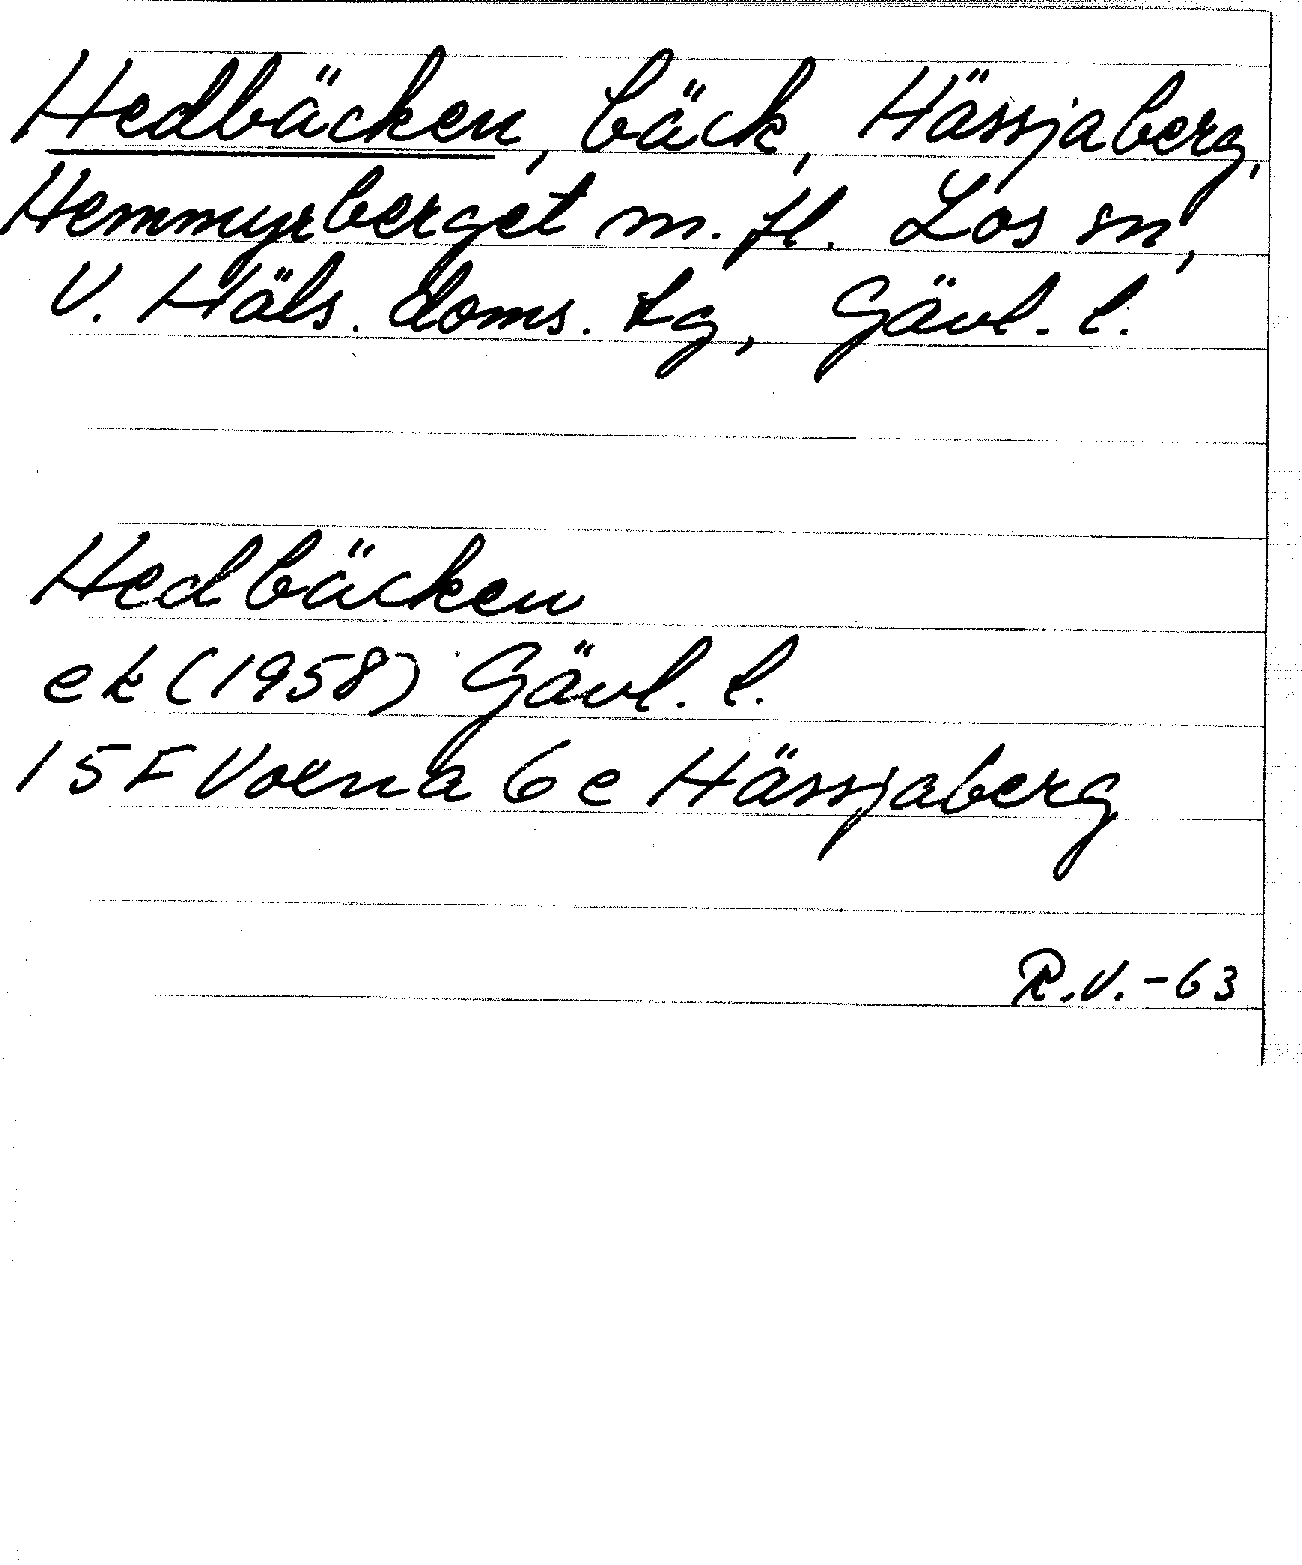 Hedbäcken, bäck, Hässjaberg,
Hemmyrberget m. fl. Los sn,
V. Häls. doms. tg, Gävl. l.
Hedbäcken
ek (1958) Gävl. l.
15 F Voxna 6 e Hässjaberg
R.V.-63